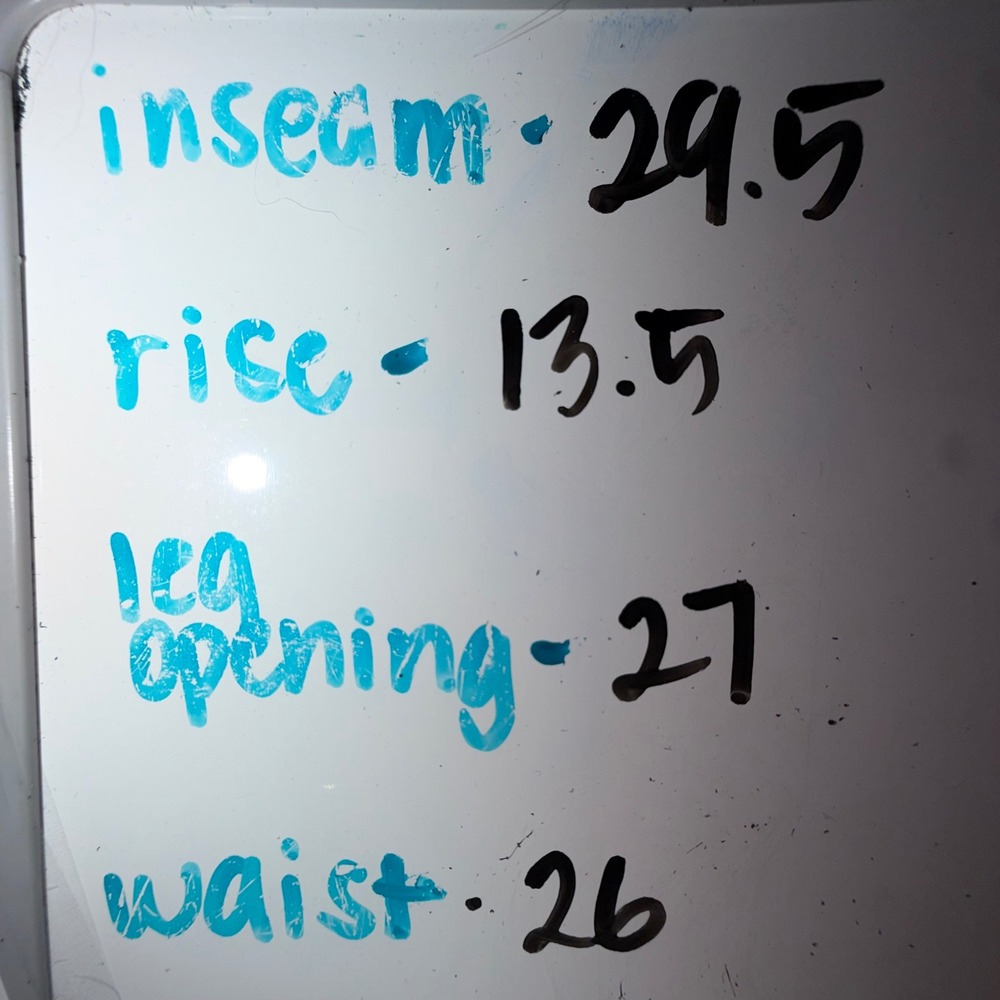 inseam - 29.5
rise - 13.5
leg
opening - 27
waist . 26